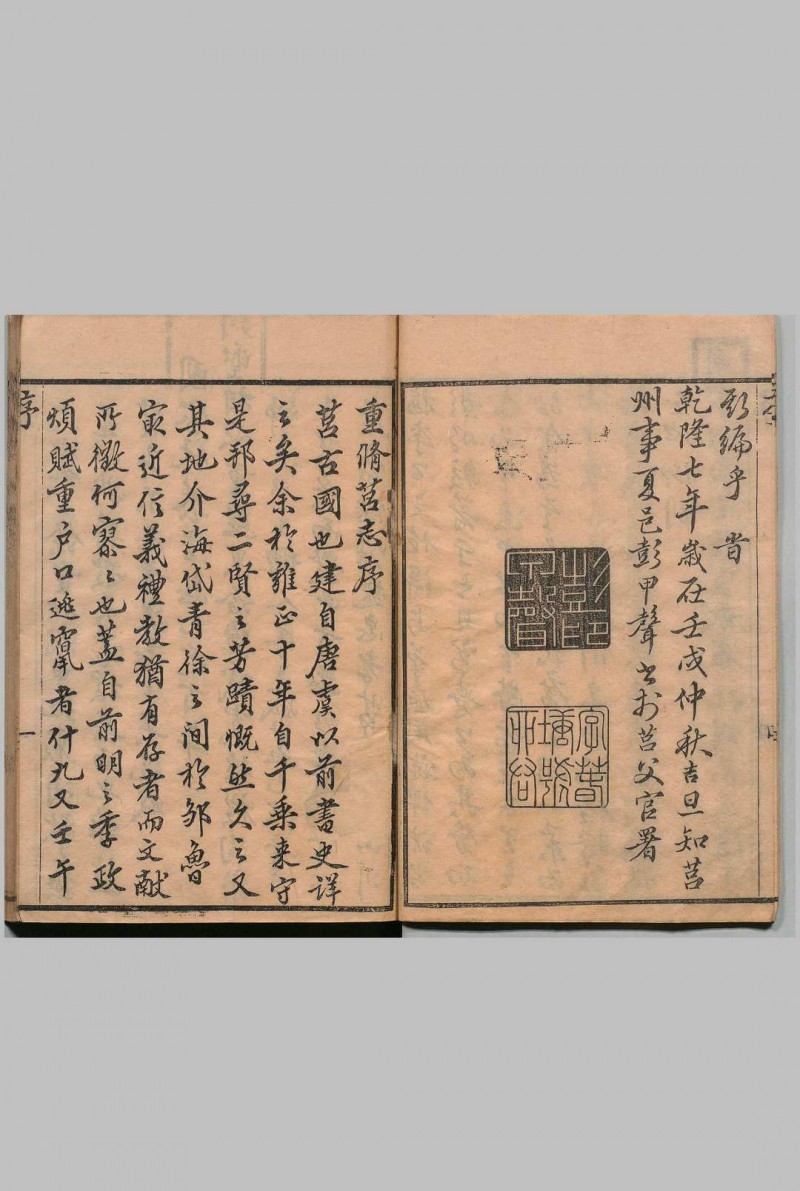 斯編乎 旹
乾隆七年歲在壬戌仲秋吉旦知莒
州事夏邑彭甲聲書於莒父官署
彭甲聲印
字葉塤號
重脩莒志序
莒古國也建自唐虞以前書史詳
之矣余於雍正十年自千乗来守
是邦尋二賢之芳蹟慨然久之又
其地介海岱青徐之間於邹魯
冣近信義禮教猶有存者而文献
所徵何寥〻也葢自前明之季政
煩賦重户口逃竄者什九又壬午
序
一